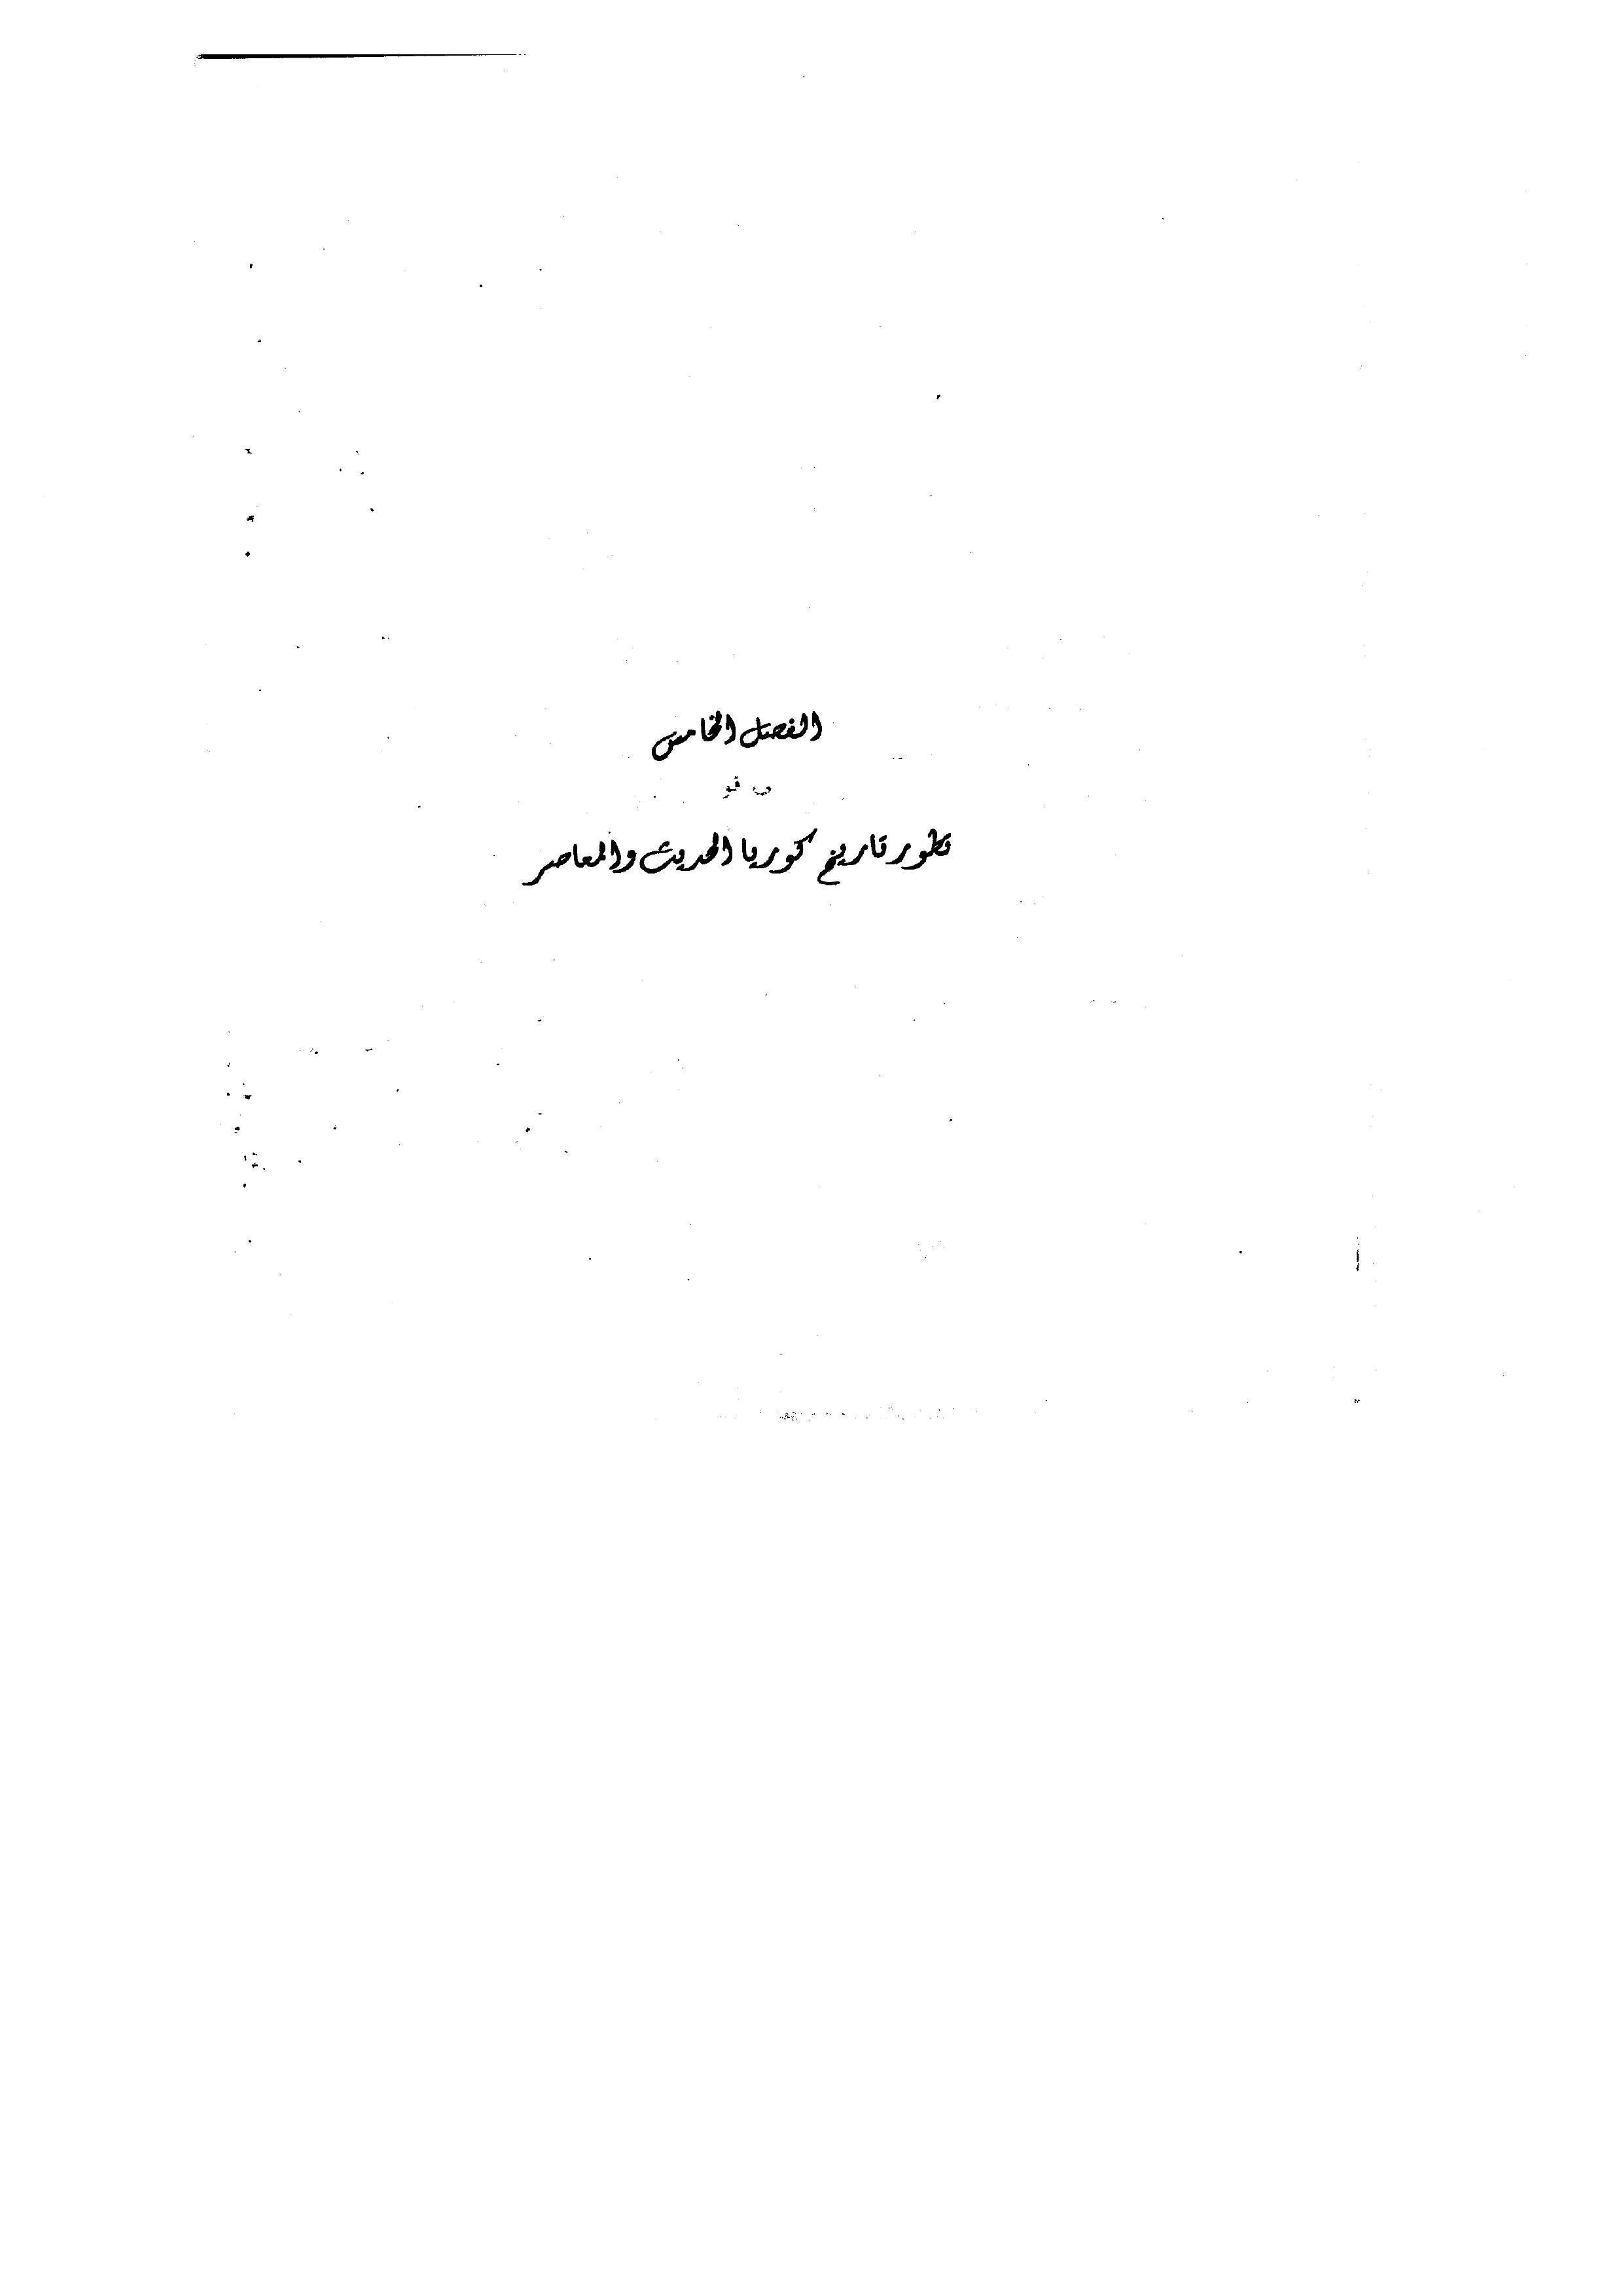 الفصل الخامس
تطور تاريخ كوريا الحديث والمعاصر